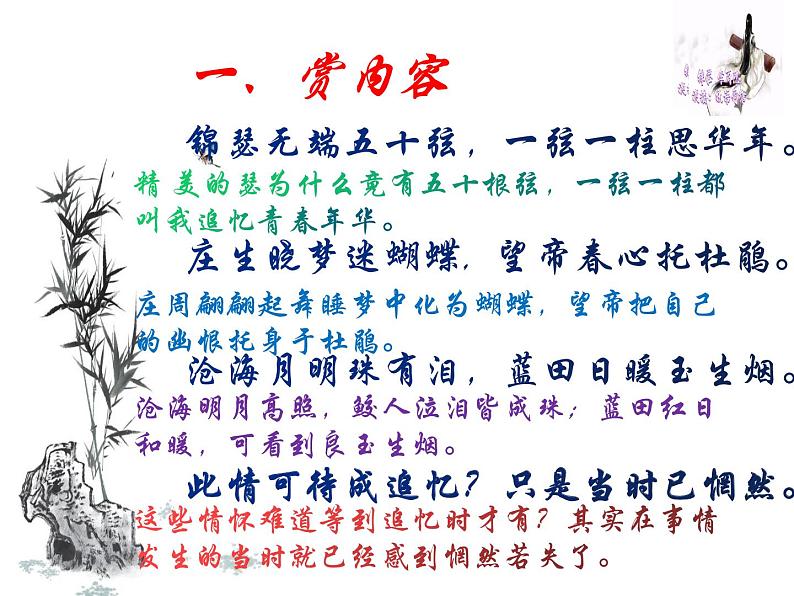 一、赏内容
锦瑟无端五十弦，一弦一柱思华年。
精美的瑟为什么竟有五十根弦，一弦一柱都
叫我追忆青春年华。
庄生晓梦迷蝴蝶，望帝春心托杜鹃。
庄周翩翩起舞睡梦中化为蝴蝶，望帝把自己
的幽恨托身于杜鹃。
沧海月明珠有泪，蓝田日暖玉生烟。
沧海明月高照，鲛人泣泪皆成珠；蓝田红日
和暖，可看到良玉生烟。
此情可待成追忆？只是当时已惘然。
这些情怀难道等到追忆时才有？其实在事情
发生的当时就已经感到惘然若失了。